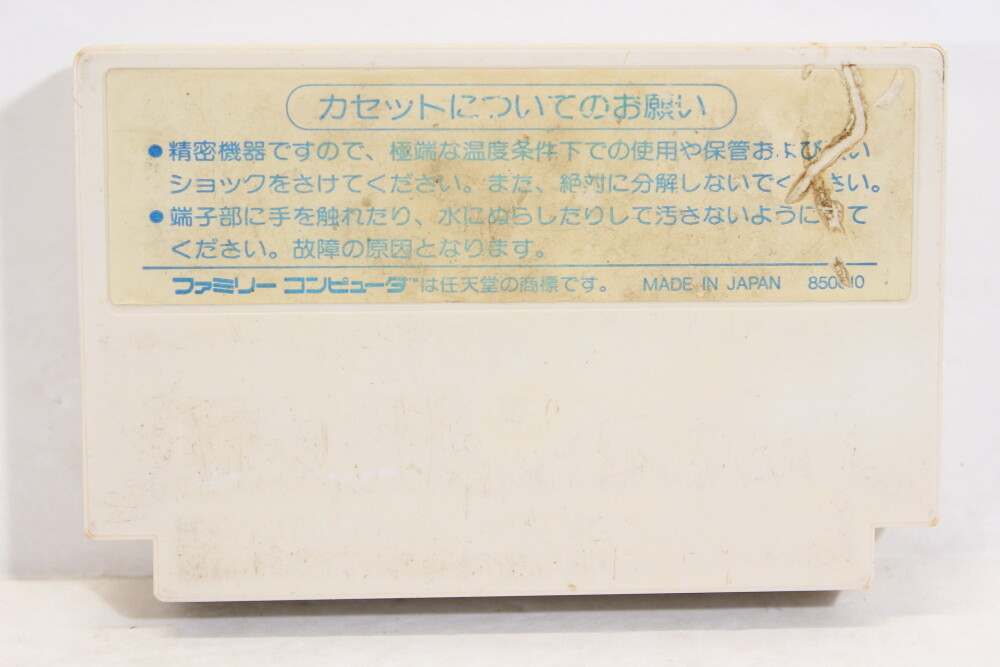 カセットについてのお願い
●精密機器ですので、極端な温度条件下での使用や保管および い
ショックをさけてください。また、絶対に分解しないでください。
●端子部に手を触れたり、水にぬらしたりして汚さないように て
ください。故障の原因となります。
ファミリーコンピュータ™は任天堂の商標です。 MADE IN JAPAN